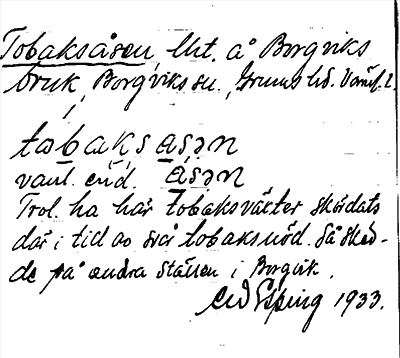 Tobaksåsen, lht. å Borgviks
bruk, Borgviks sn., Grums hd. Värml. l.
tobaksåsən
vanl. end. åsən
Trol. ha här tobaksväxter skördats
där i tid av svår tobaksnöd. Så sked-
de på andra ställen i Borgvik.
Esping 1933.